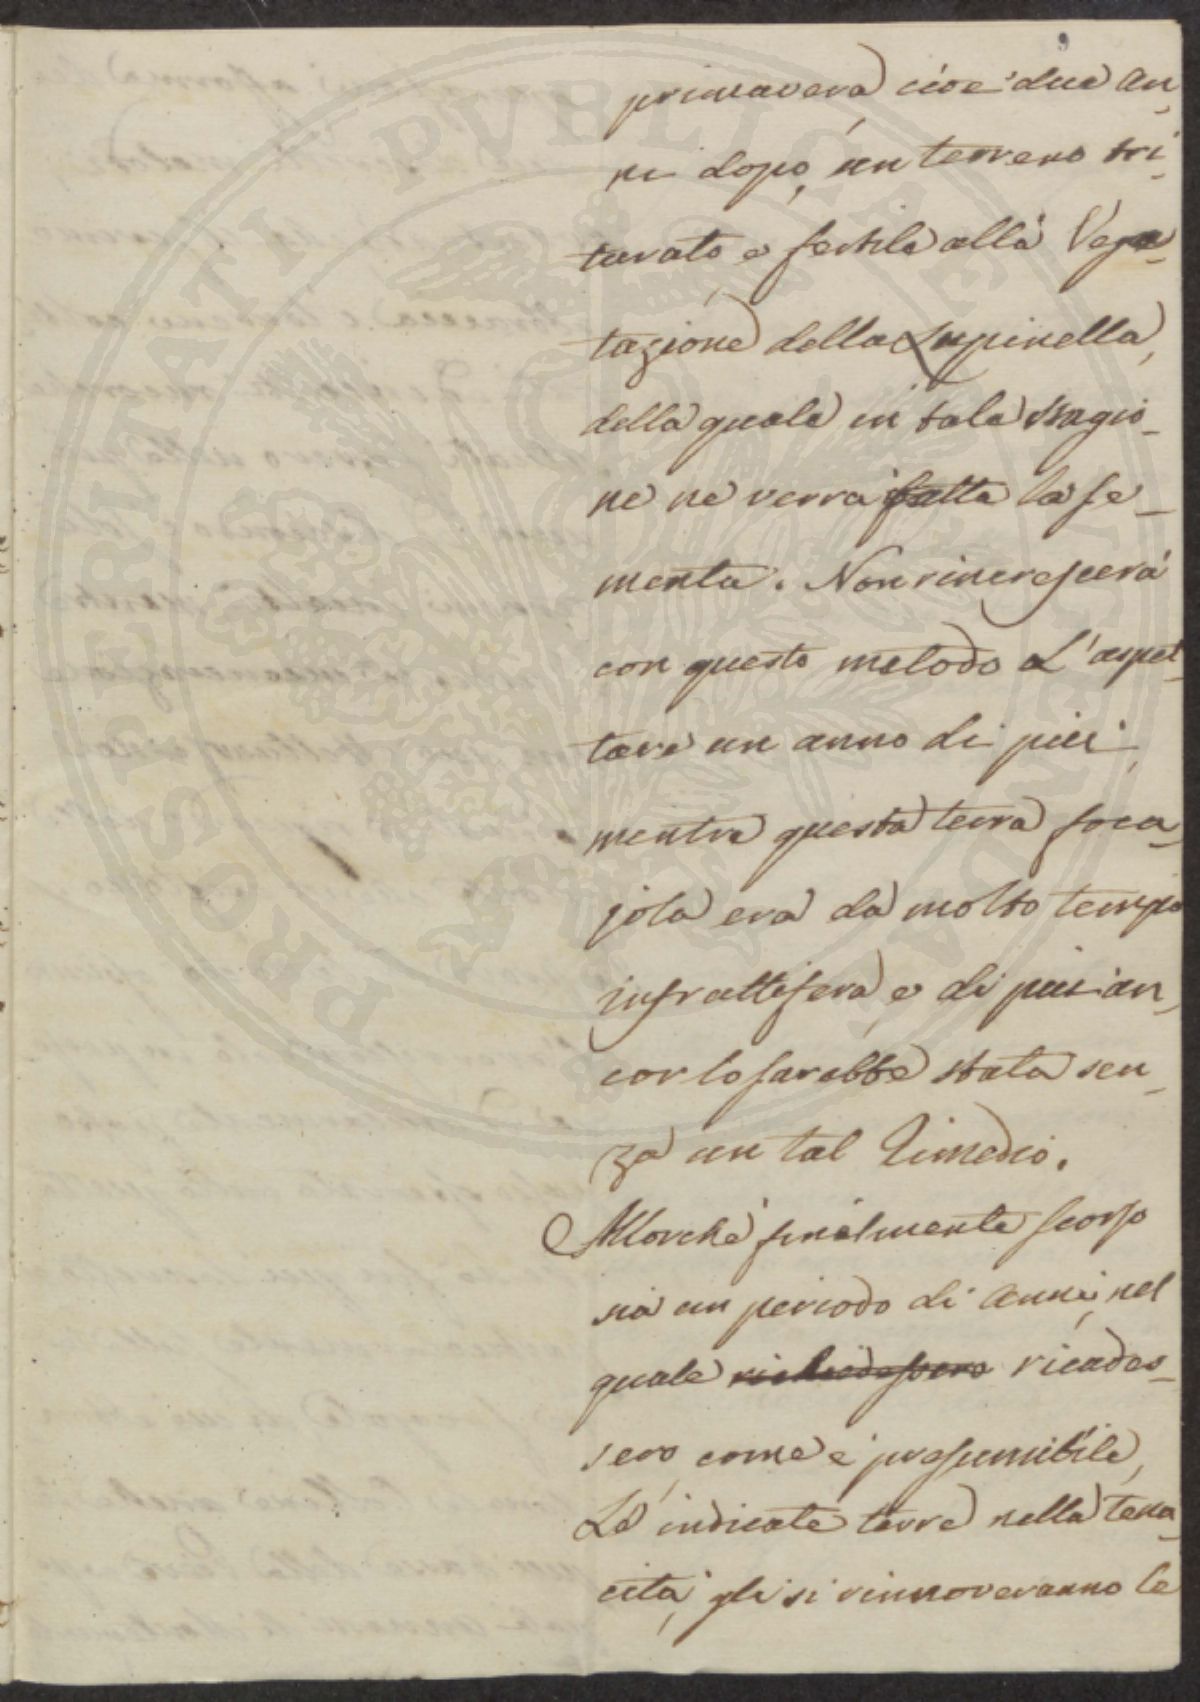 primavera, cioe' due an,
ni dopo, un terreno tri_
turato e fertile alla Vege_
tazione della Lupinella,
della quale in tale stagio_
ne ne verrà fatta la se_
menta. Non rincrescerà
con questo metodo L'aspet_
tare un anno di più,
mentre questa terra foca_
jola era da molto tempo
infruttifera, e di più an_
cor lo sarebbe stata sen_
za un tal Rimedio.
Allorchè finalmente scorso
sia un periodo di anni, nel
quale ricades_
sero, come è presumibile,
Le indicate terre nella tena_
cità, gli si rinnoveranno le
PROSPERITATI PVBLICAE AVGENDAE